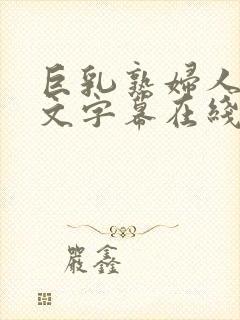 巨乳熟婦人
文字幕在綫
嚴鑫